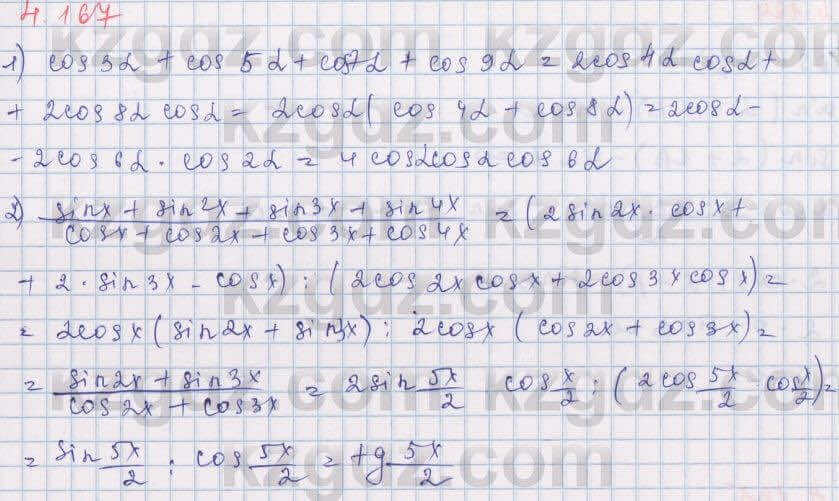 4.167
1) cos 3α + cos 5α + cos7α + cos 9α = 2cos 4α cosα +
+ 2cos 8α cosα = 2cosα( cos 4α + cos 8α) = 2cosα -
- 2cos 6α · cos 2α = 4 cosαcos2α cos 6α
2) (sinx + sin2x + sin3x + sin4x)/(cosx + cos2x + cos3x + cos4x) = (2sin2x · cosx +
+ 2 · sin3x - cosx) : (2cos2xcosx + 2cos3xcosx) =
= 2cosx(sin2x + sin3x) : 2cosx (cos2x + cos3x) =
= (sin2x + sin3x)/(cos2x + cos3x) = 2sin 5x/2 cos x/2 : (2cos 5x/2 cos x/2) =
= sin 5x/2 : cos 5x/2 = tg 5x/2